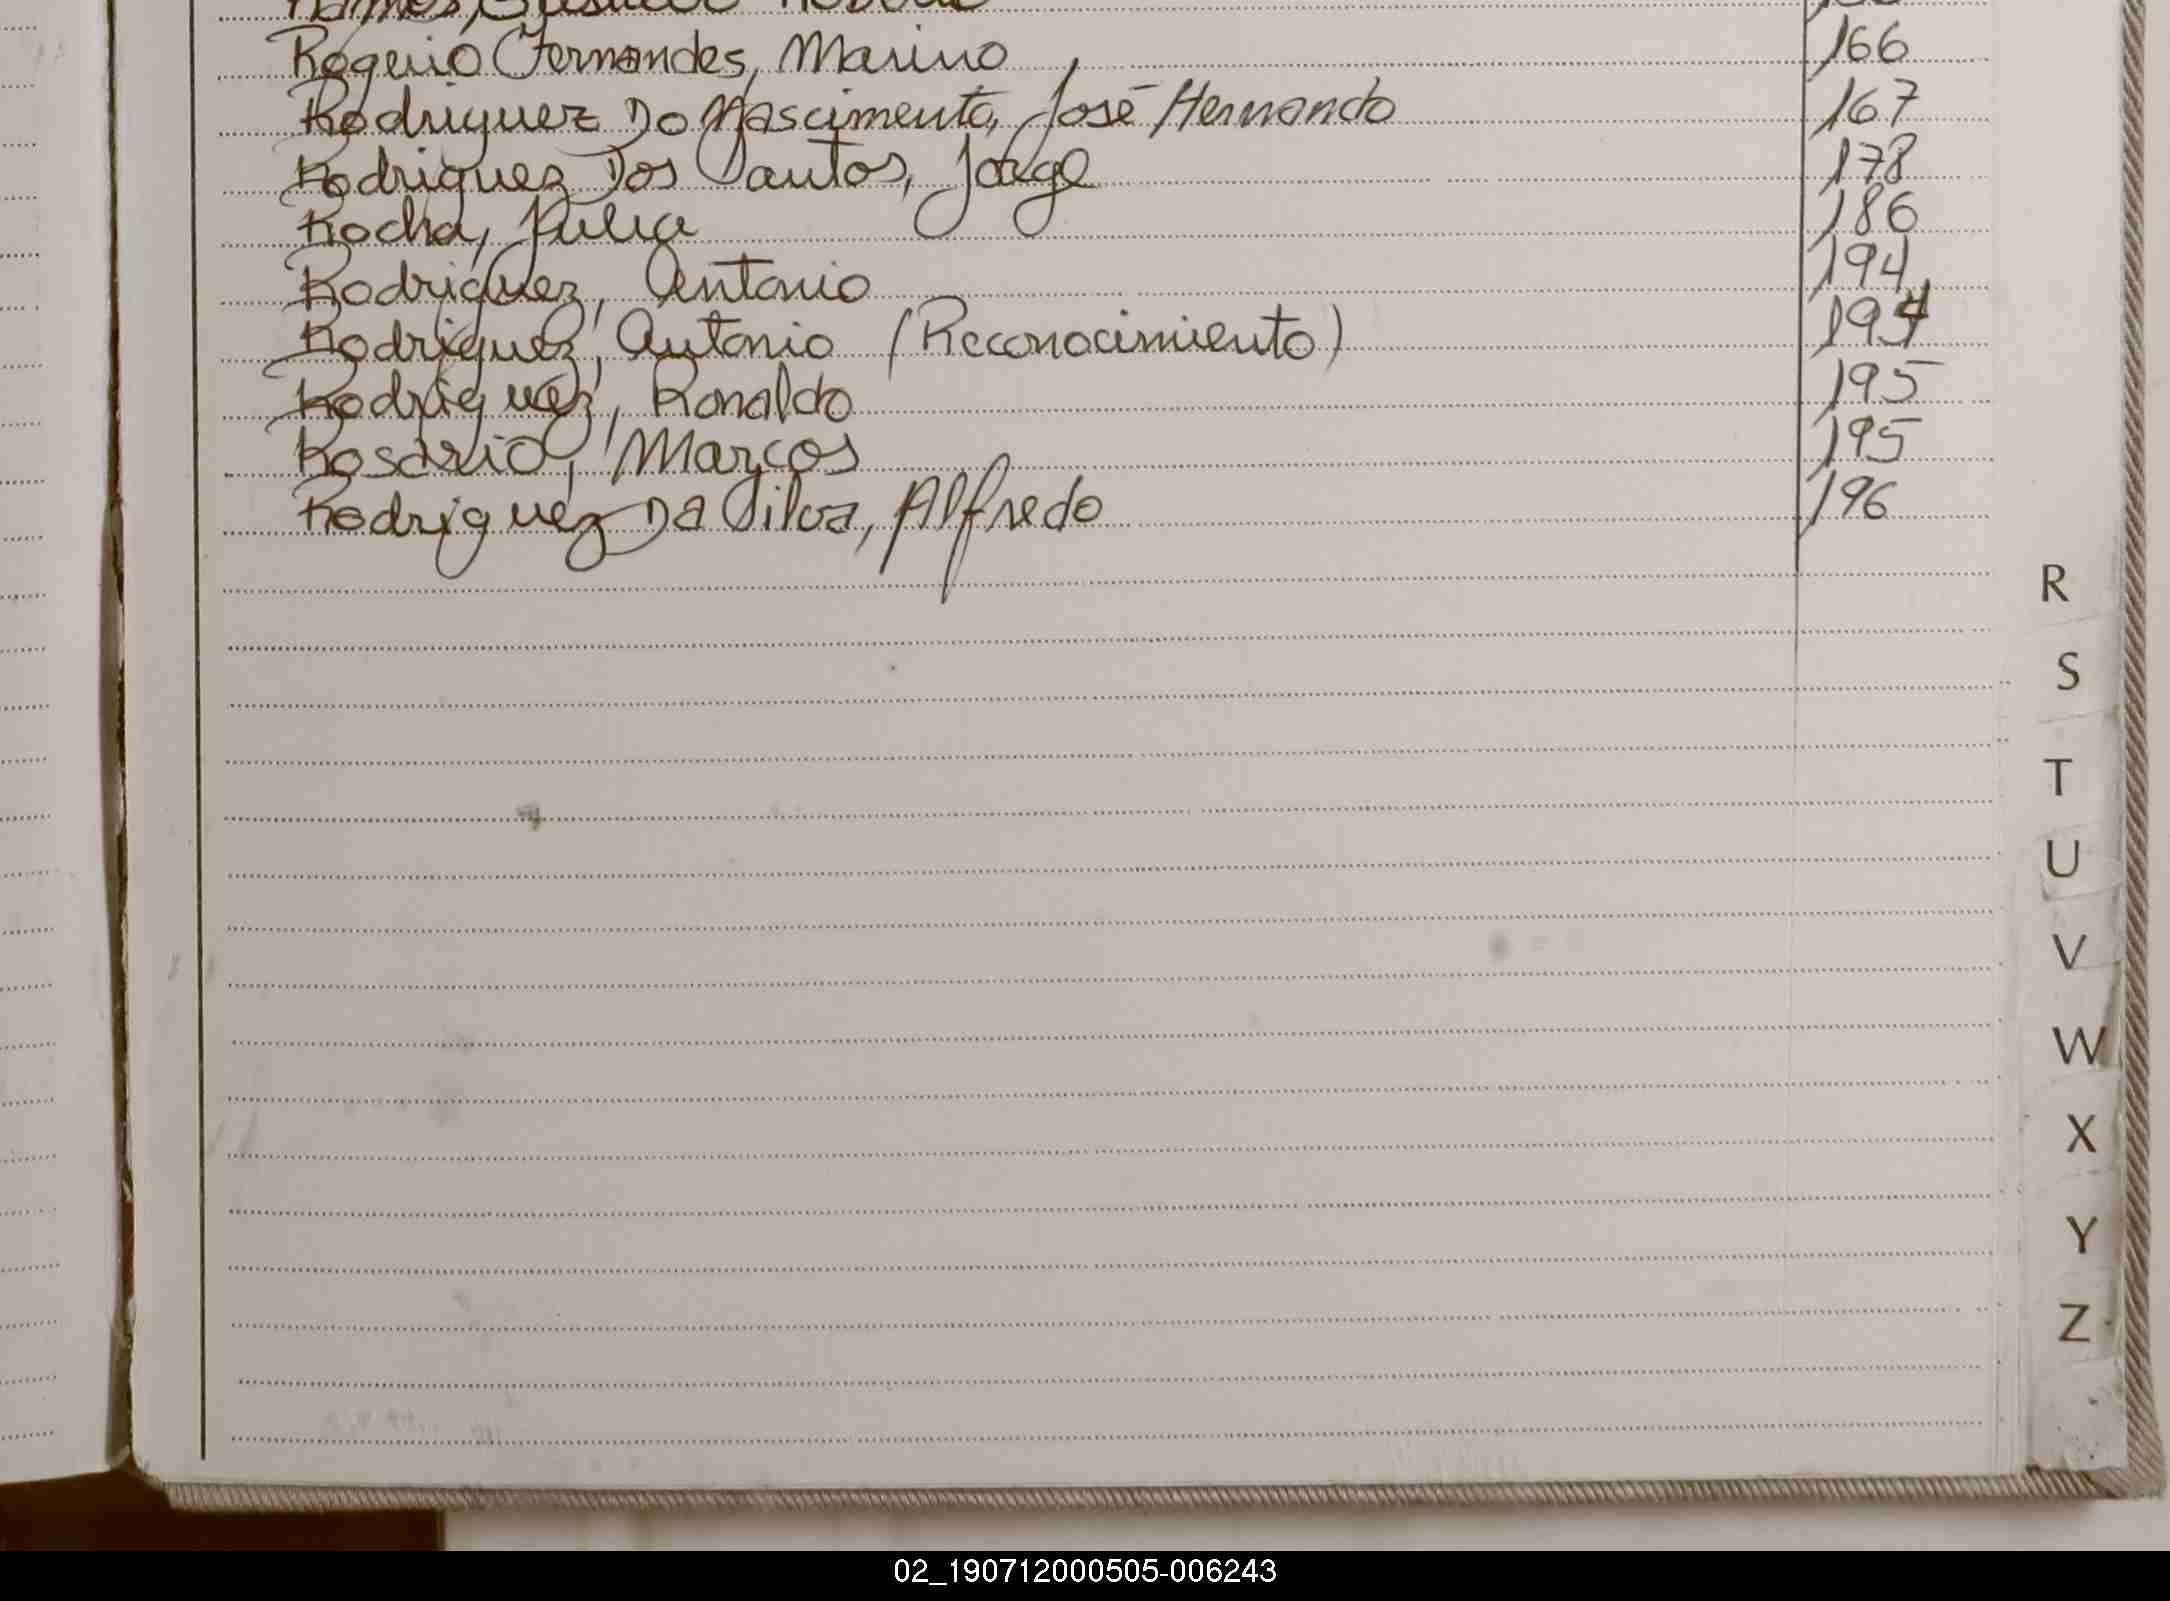 Rogerio Fernandes, Marino 166
Rodriguez Do Nascimento, José Hernando 167
Rodriguez Dos Santos, Jorge 178
Rocha, Julia 186
Rodriguez, Antonio 194
Rodriguez, Antonio (Reconocimiento) 194
Rodriguez, Ronaldo 195
Rosario, Marcos 195
Rodriguez Da Silva, Alfredo 196
R
S
T
U
V
W
X
Y
Z
02_190712000505-006243